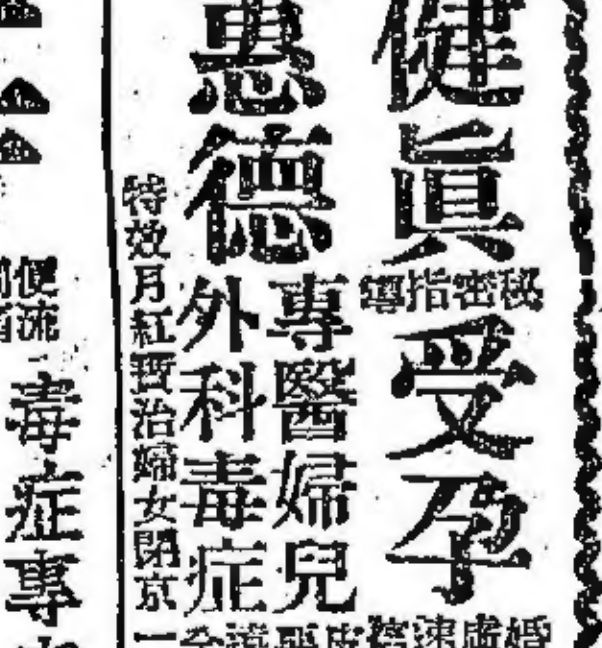 健眞
秘密指導
受孕
惠德
專醫婦兒
外科毒症
特效月紅寶治婦女閉京一
便流
毒症專